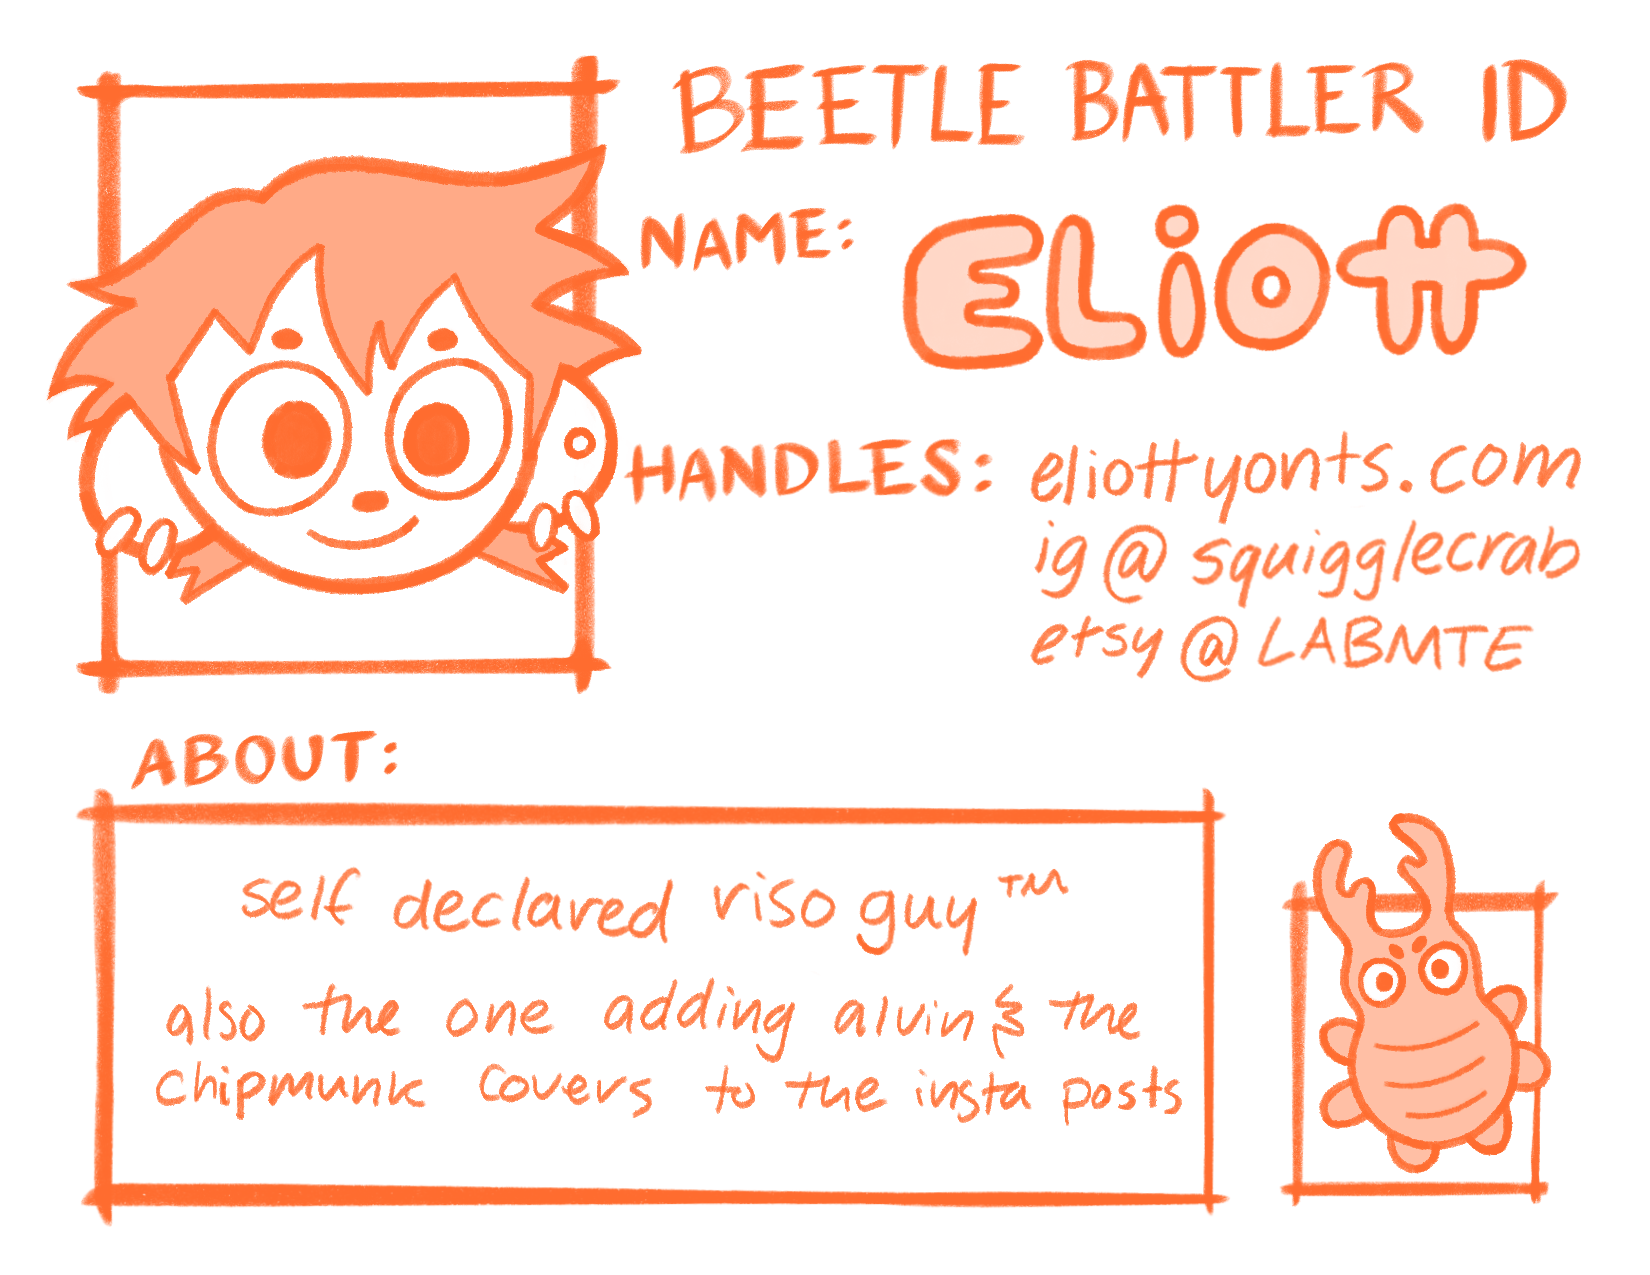 BEETLE BATTLER ID
NAME: ELiOtt
HANDLES: eliottyonts.com
ig@squigglecrab
etsy@LABMTE
ABOUT:
self declared riso guy™
also the one adding alvin & the
chipmunk covers to the insta posts